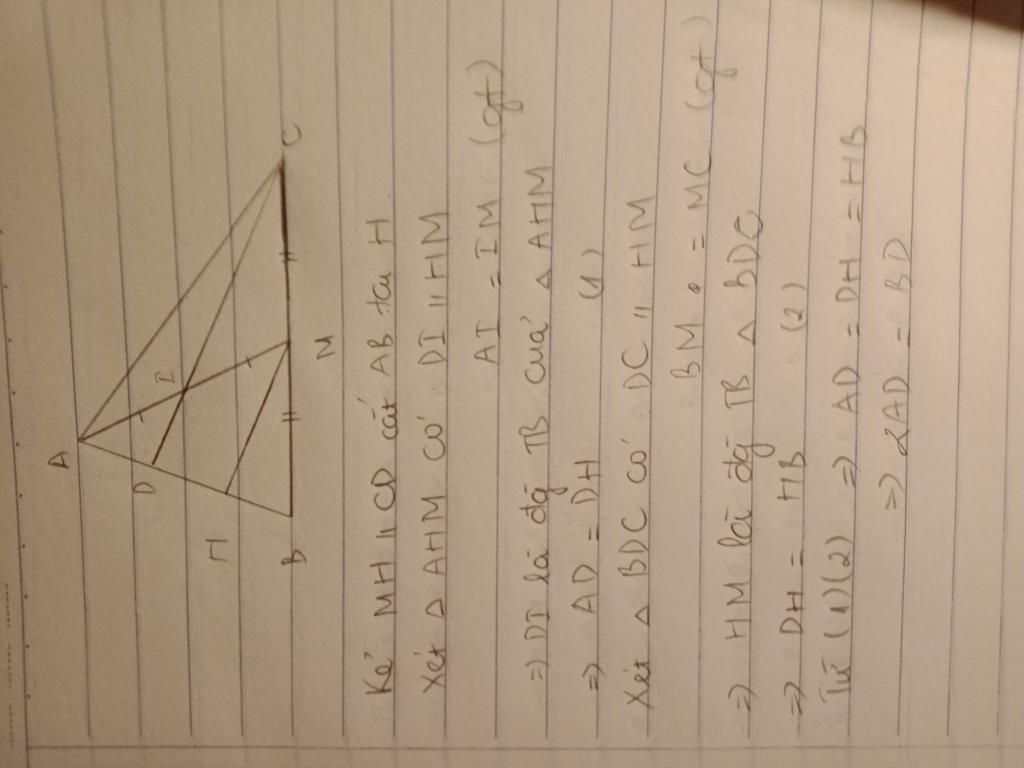 A
D
I
H
B
M
C
Kẻ MH // CD cắt AB tại H
Xét △ AHM có DI // HM
AI = IM (gt)
=> DI là đg TB cuả △ AHM
=> AD = DH (1)
Xét △ BDC có DC // HM
BM = MC (gt)
=> HM là đg TB △ BDC
=> DH = HB (2)
Từ (1)(2) => AD = DH = HB
=> 2AD = BD